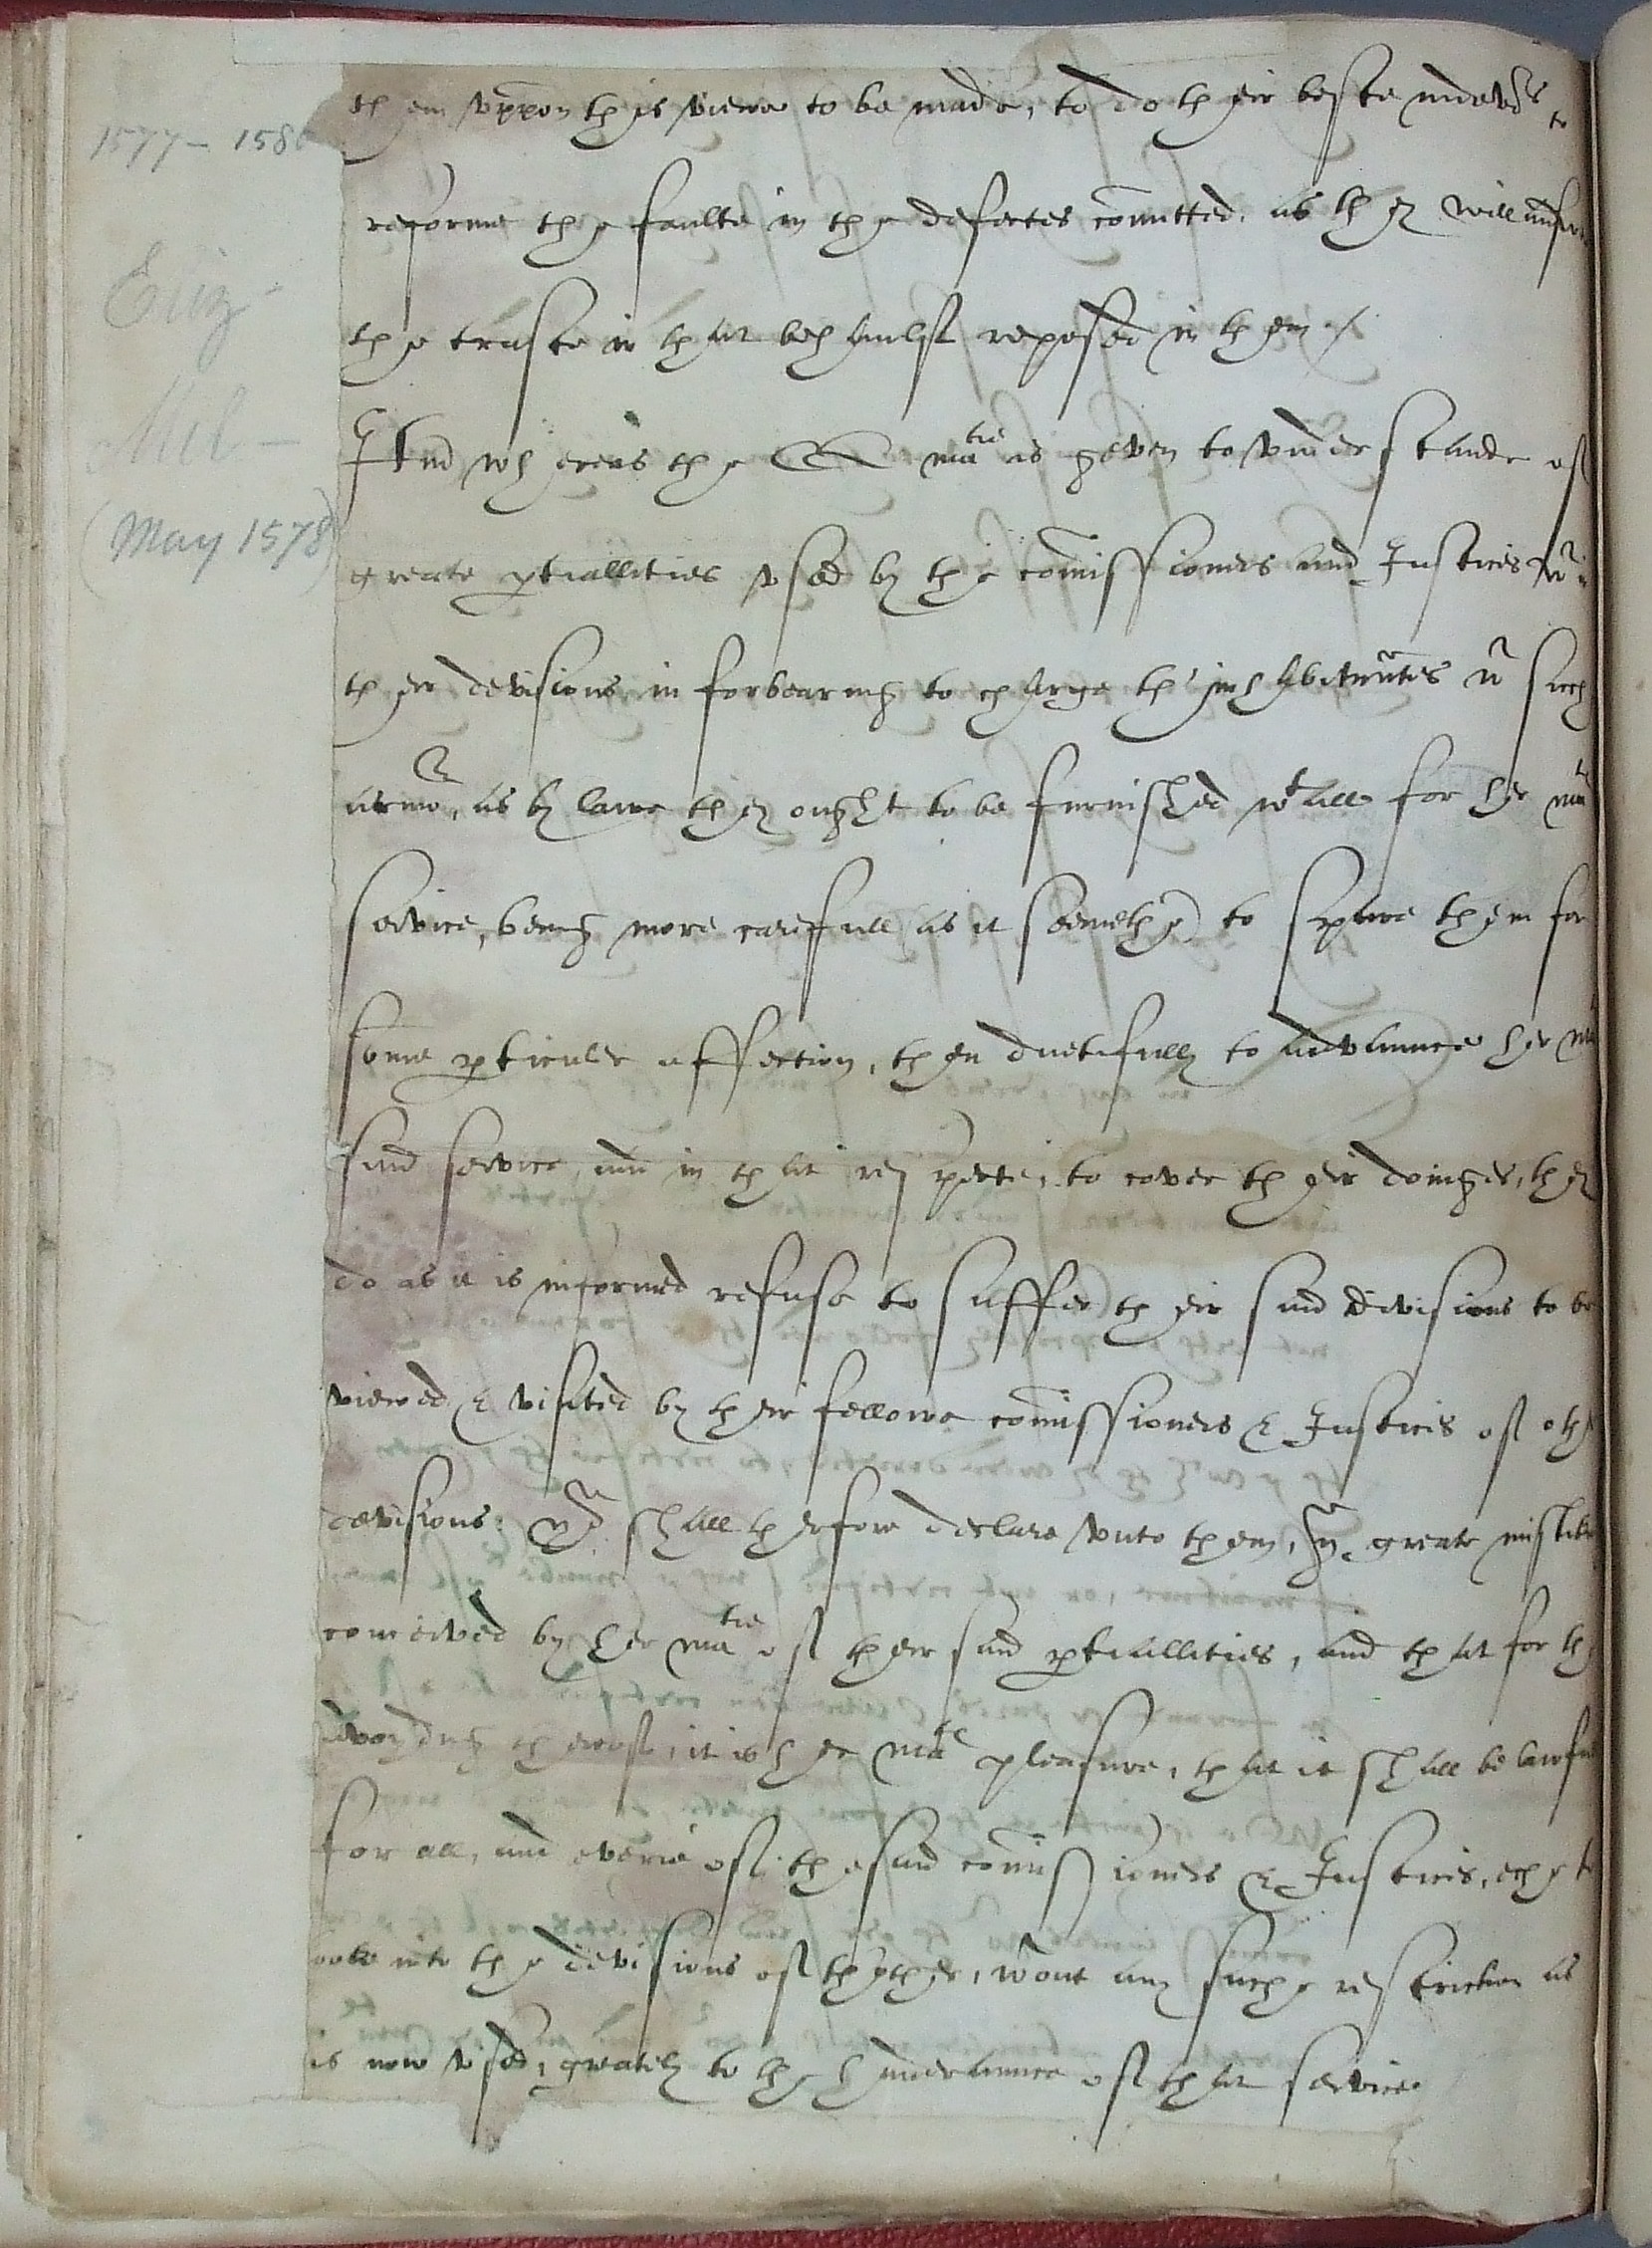 1577 - 158
Eliz -
Mil -
(May 1578)
them vppon this viewe to be made, to do their beste indevors to
reforme the faulte in the defectes comitted, as they will answer
the truste in that behaulf reposed in them ./.
And whereas the Q ma^tie is geven to vnderstande of
greate p̱tiallities vsed by the comissioners and Justices w^t in
their devisions in forbearing to charge th'inhabitauntes w^t such
armo^r, as by lawe they ought to be furnished w^t all for her ma^ts
service, being more carefull (as it seemethe) to spare them for
some p̱ticuler affection, then duetifully to advaunce her ma
said service, and in that respecte, to cover their doinges, they
do as it is informed refuse to suffer their said divisions to be
viewed & visited by their fellowe comissioners & Justices of oth
devisions: shall therfore declare vnto them, y^e greate mislike
conceived by her ma^tie of their said p̱tiallities, and that for th
avoyding therof, it is her ma^te pleasure, that it shall be lawfu
for all, and everie of the said comissioners & Justices, eche to
looke into the devisions of th'other, w^t out any suche restriction as
is now vsed, greately to the hinderaunce of that service